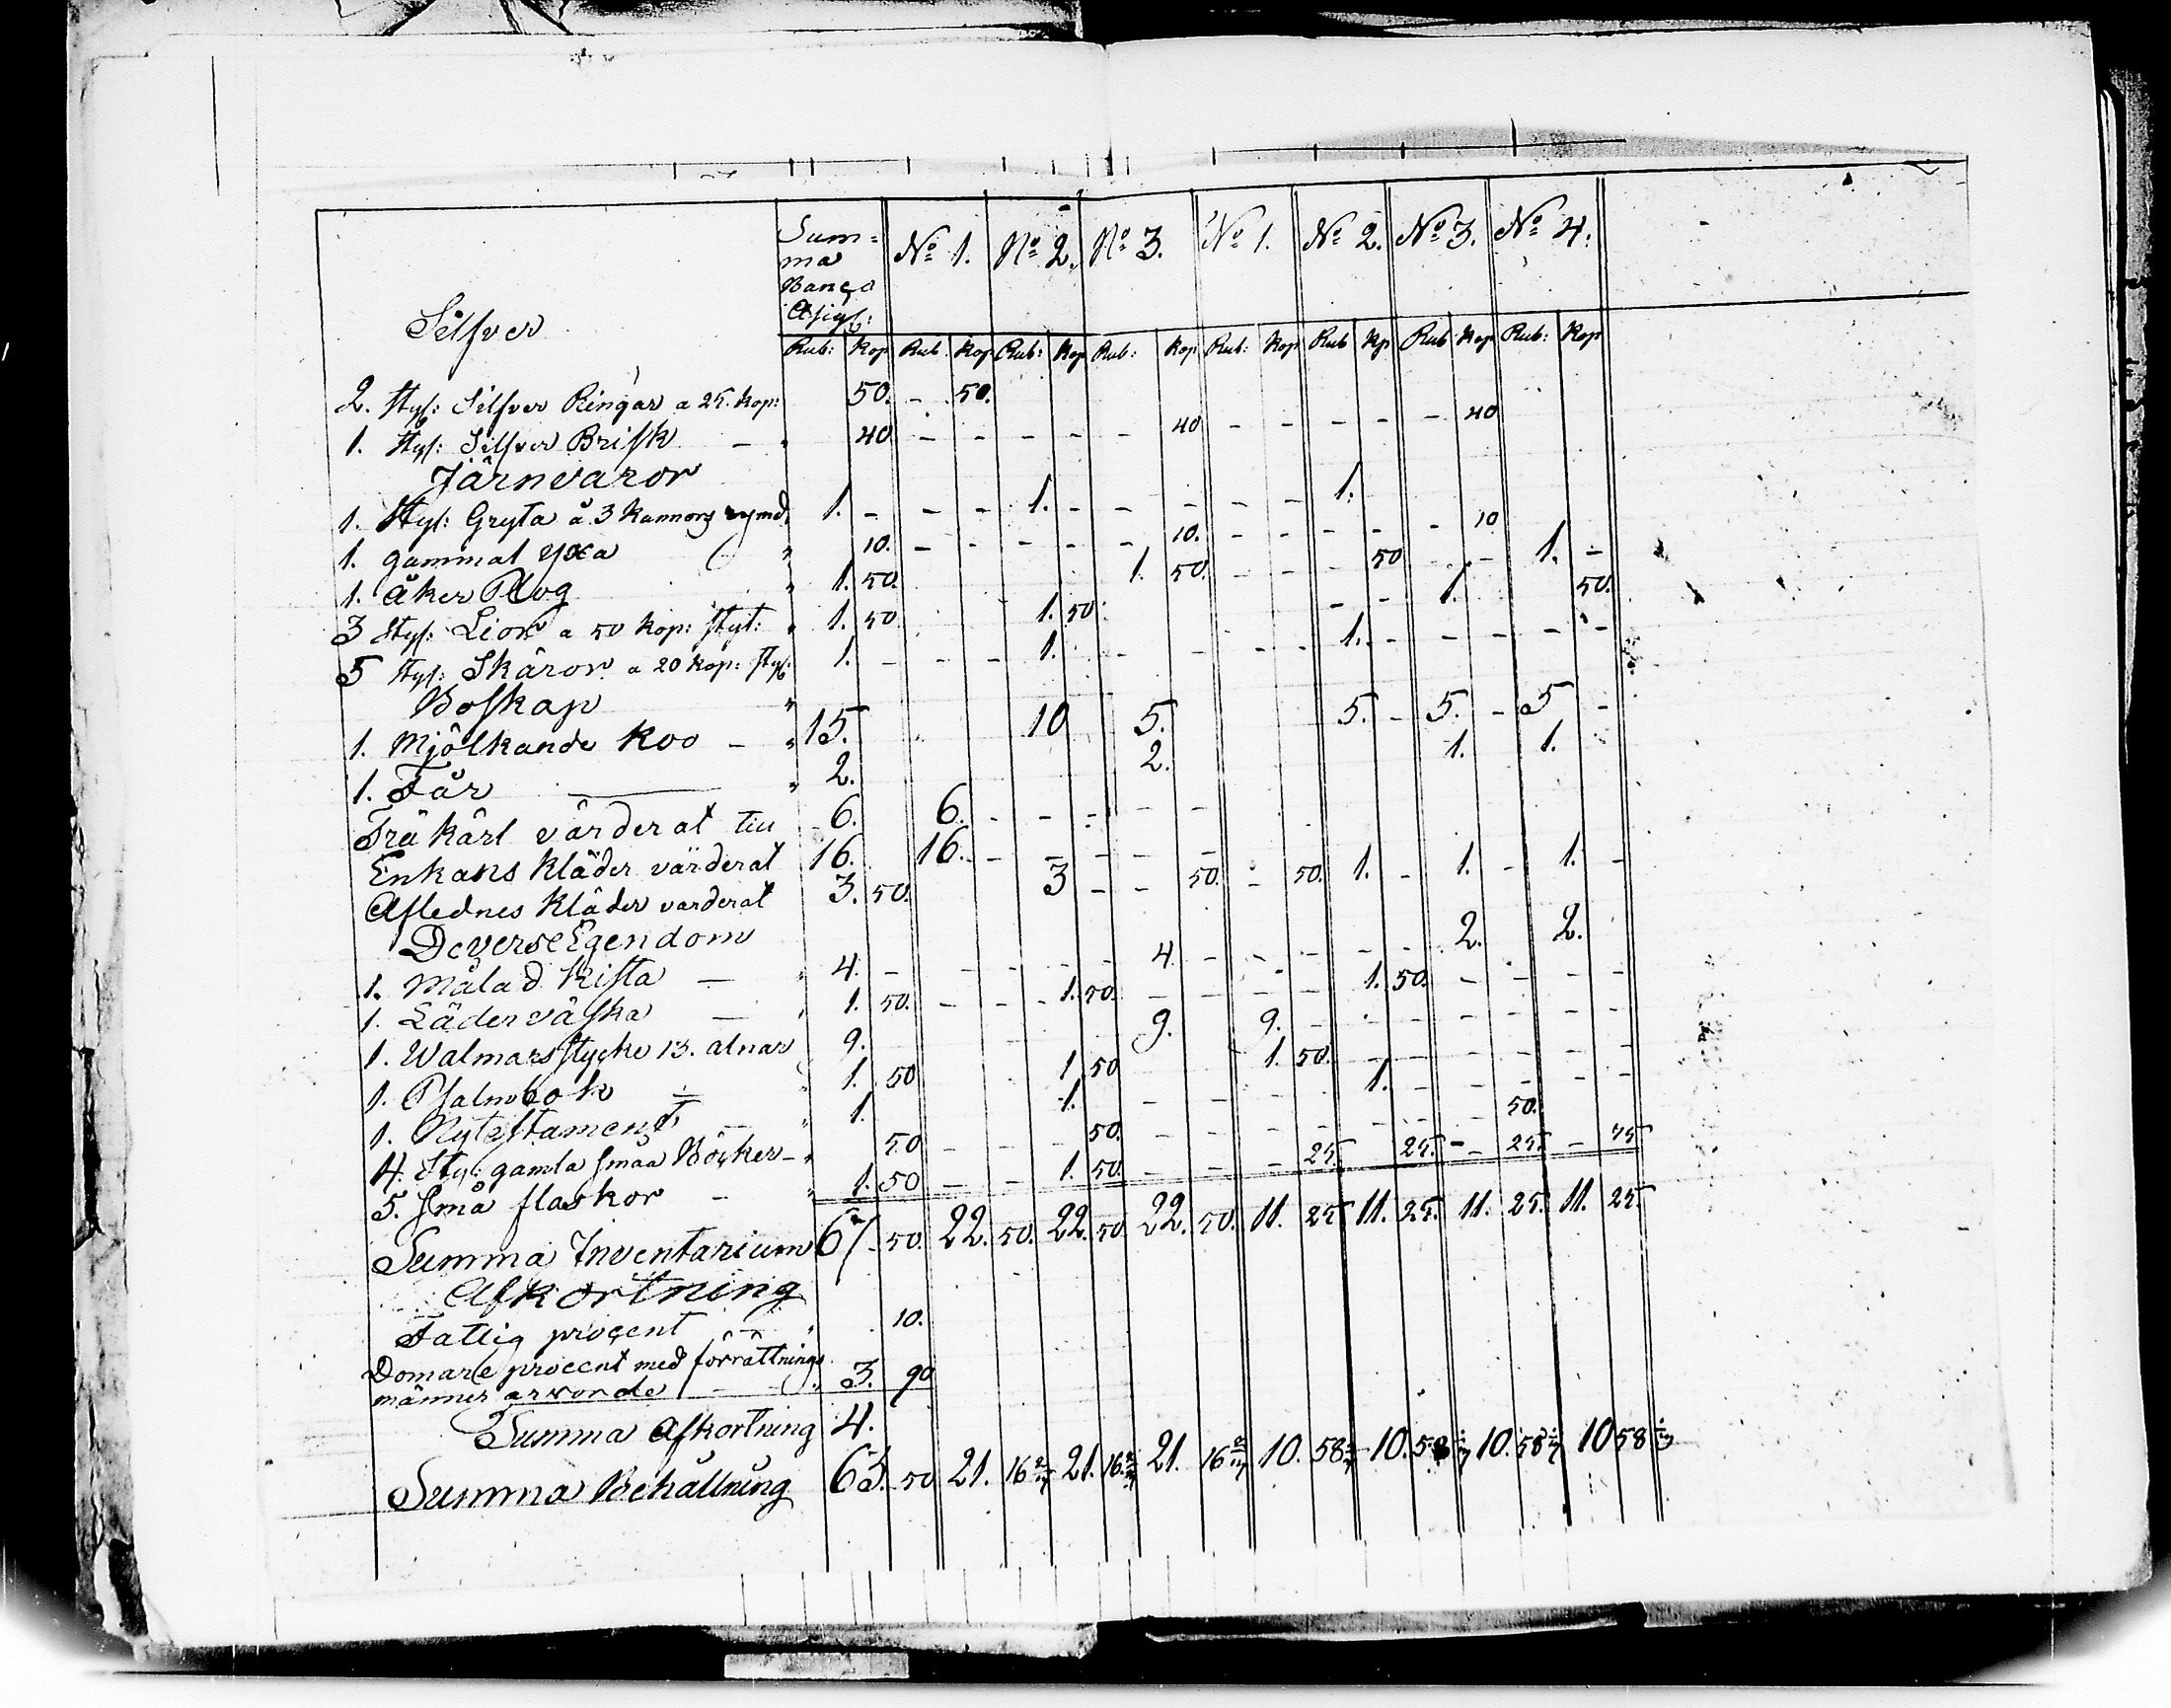 Sum= No 1. No 2. No 3. No 1. No 2. No 3. No 4.
ma
Banco
Asig:
Silfver
Rub: Kop Rub Kop Rub: Kop Rub: Kop Rub: Kop Rub Kp Rub Kop Rub: Kop
2. Sty: Silfver Ringar a 25. Kop: 50. - 50.
1. Sty: Silfver Brisk - 40 - - - - - 40 - - - - - 40
Järnvaror
1. Sty: Gryta å 3 Kannors rymd 1. - - - - 1. - - - - - 1.
1. gammal yxa " 10. - - - - - 10. - - - - - 10
1. åker Plog " 1. 50. 1. 50. - - - 50 - - 1. -
3 Sty: Lior a 50 Kop: styk: " 1. 50 1. 50. - - 1. 50.
5 Sty: Skäror a 20 Kop: sty: 1. - - - 1. - - - 1. - - - - -
Boskap "
1. Mjölkande Koo - " 15. 10 5. 5. - 5. - 5 -
1. Får " 2. 2. 1. 1.
Träkärl värderat till 6. 6. - - - - -
Enkans kläder värderat 16. 16. - - - - -
Aflednes kläder varderat 3. 50. 3 - - 50. - 50. 1. - 1. - 1. -
Deverse Egendom
1. Målad Kista - " 4. - - - - - 4 - - - - - 2. 2.
1. Läderväska - 1. 50. - - - 1. 50. - - - - 1. 50. - - - -
1. Walmarsstycke 13. alnar 9. 9. 9. - - - - - - -
1. Psalmbok " 1. 50 1. 50 - 1. 50. - - - - - -
1. Nytestament " 1. 1. - - - - 1. - - - - -
4. Sty: gamla smaa Böcker - " 50 - - - 50. - - - - - - - 50.
5. små flaskor - " 1. 50 - - 1. 50. - - - 25. 25. - - 25. - 75
Summa Inventarium 67 - 50. 22. 50. 22. 50. 22. 50. 11. 25 11. 25. 11. 25. 11. 25.
Afkortning
Fattig procent " 10.
Domare procent med förrättnings
männer arvorde - " 3. 90
Summa Afkortning 4.
Summa Behållning 63. 50 21. 16 21. 16 21. 16 10. 58 10. 58 10. 58 10 58